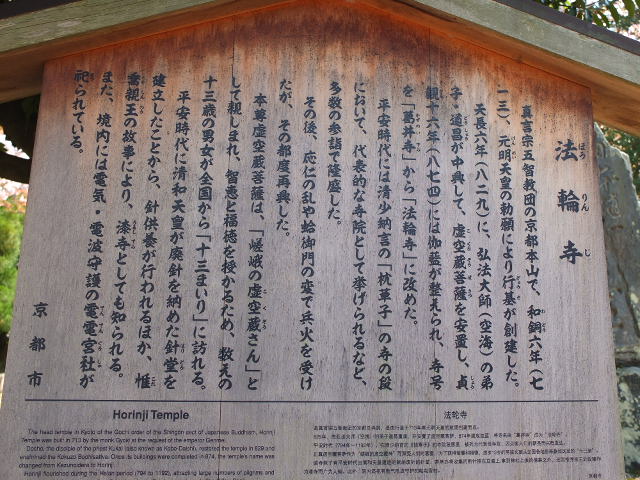 法輪寺
ほうりんじ
真言宗五智教団の京都本山で、和銅六年（七
一三）、元明天皇の勅願により行基が創建した。
天長六年（八二九）に、弘法大師（空海）の弟
子・道昌が中興して、虚空蔵菩薩を安置し、貞
観十六年（八七四）には伽藍が整えられ、寺号
を「葛井寺」から「法輪寺」に改めた。
平安時代には清少納言の「枕草子」の寺の段
において、代表的な寺院として挙げられるなど、
多数の参詣で隆盛した。
その後、応仁の乱や蛤御門の変で兵火を受け
たが、その都度再興した。
本尊虚空蔵菩薩は、「嵯峨の虚空蔵さん」と
して親しまれ、智恵と福徳を授かるため、数えの
十三歳の男女が全国から「十三まいり」に訪れる。
平安時代に清和天皇が廃針を納めた針堂を
建立したことから、針供養が行われるほか、惟
喬親王の故事により、漆寺としても知られる。
また、境内には電気・電波守護の電電宮社が
祀られている。
京都市
Horinji Temple
The head temple in Kyoto of the Gochi order of the Shingon sect of Japanese Buddhism, Horinji
Temple was built in 713 by the monk Gyoki at the request of the emperor Genmei.
Dosho, the disciple of the priest Kukai (also known as Kobo-Daishi), restored the temple in 829 and
enshrined the Kokuzo Bodhisattva. Once its buildings were completed in 874, the temple's name was
changed from Kazunoidera to Horinji.
Horinji flourished during the Heian period (794 to 1192), attracting large numbers of pilgrims and
法轮寺